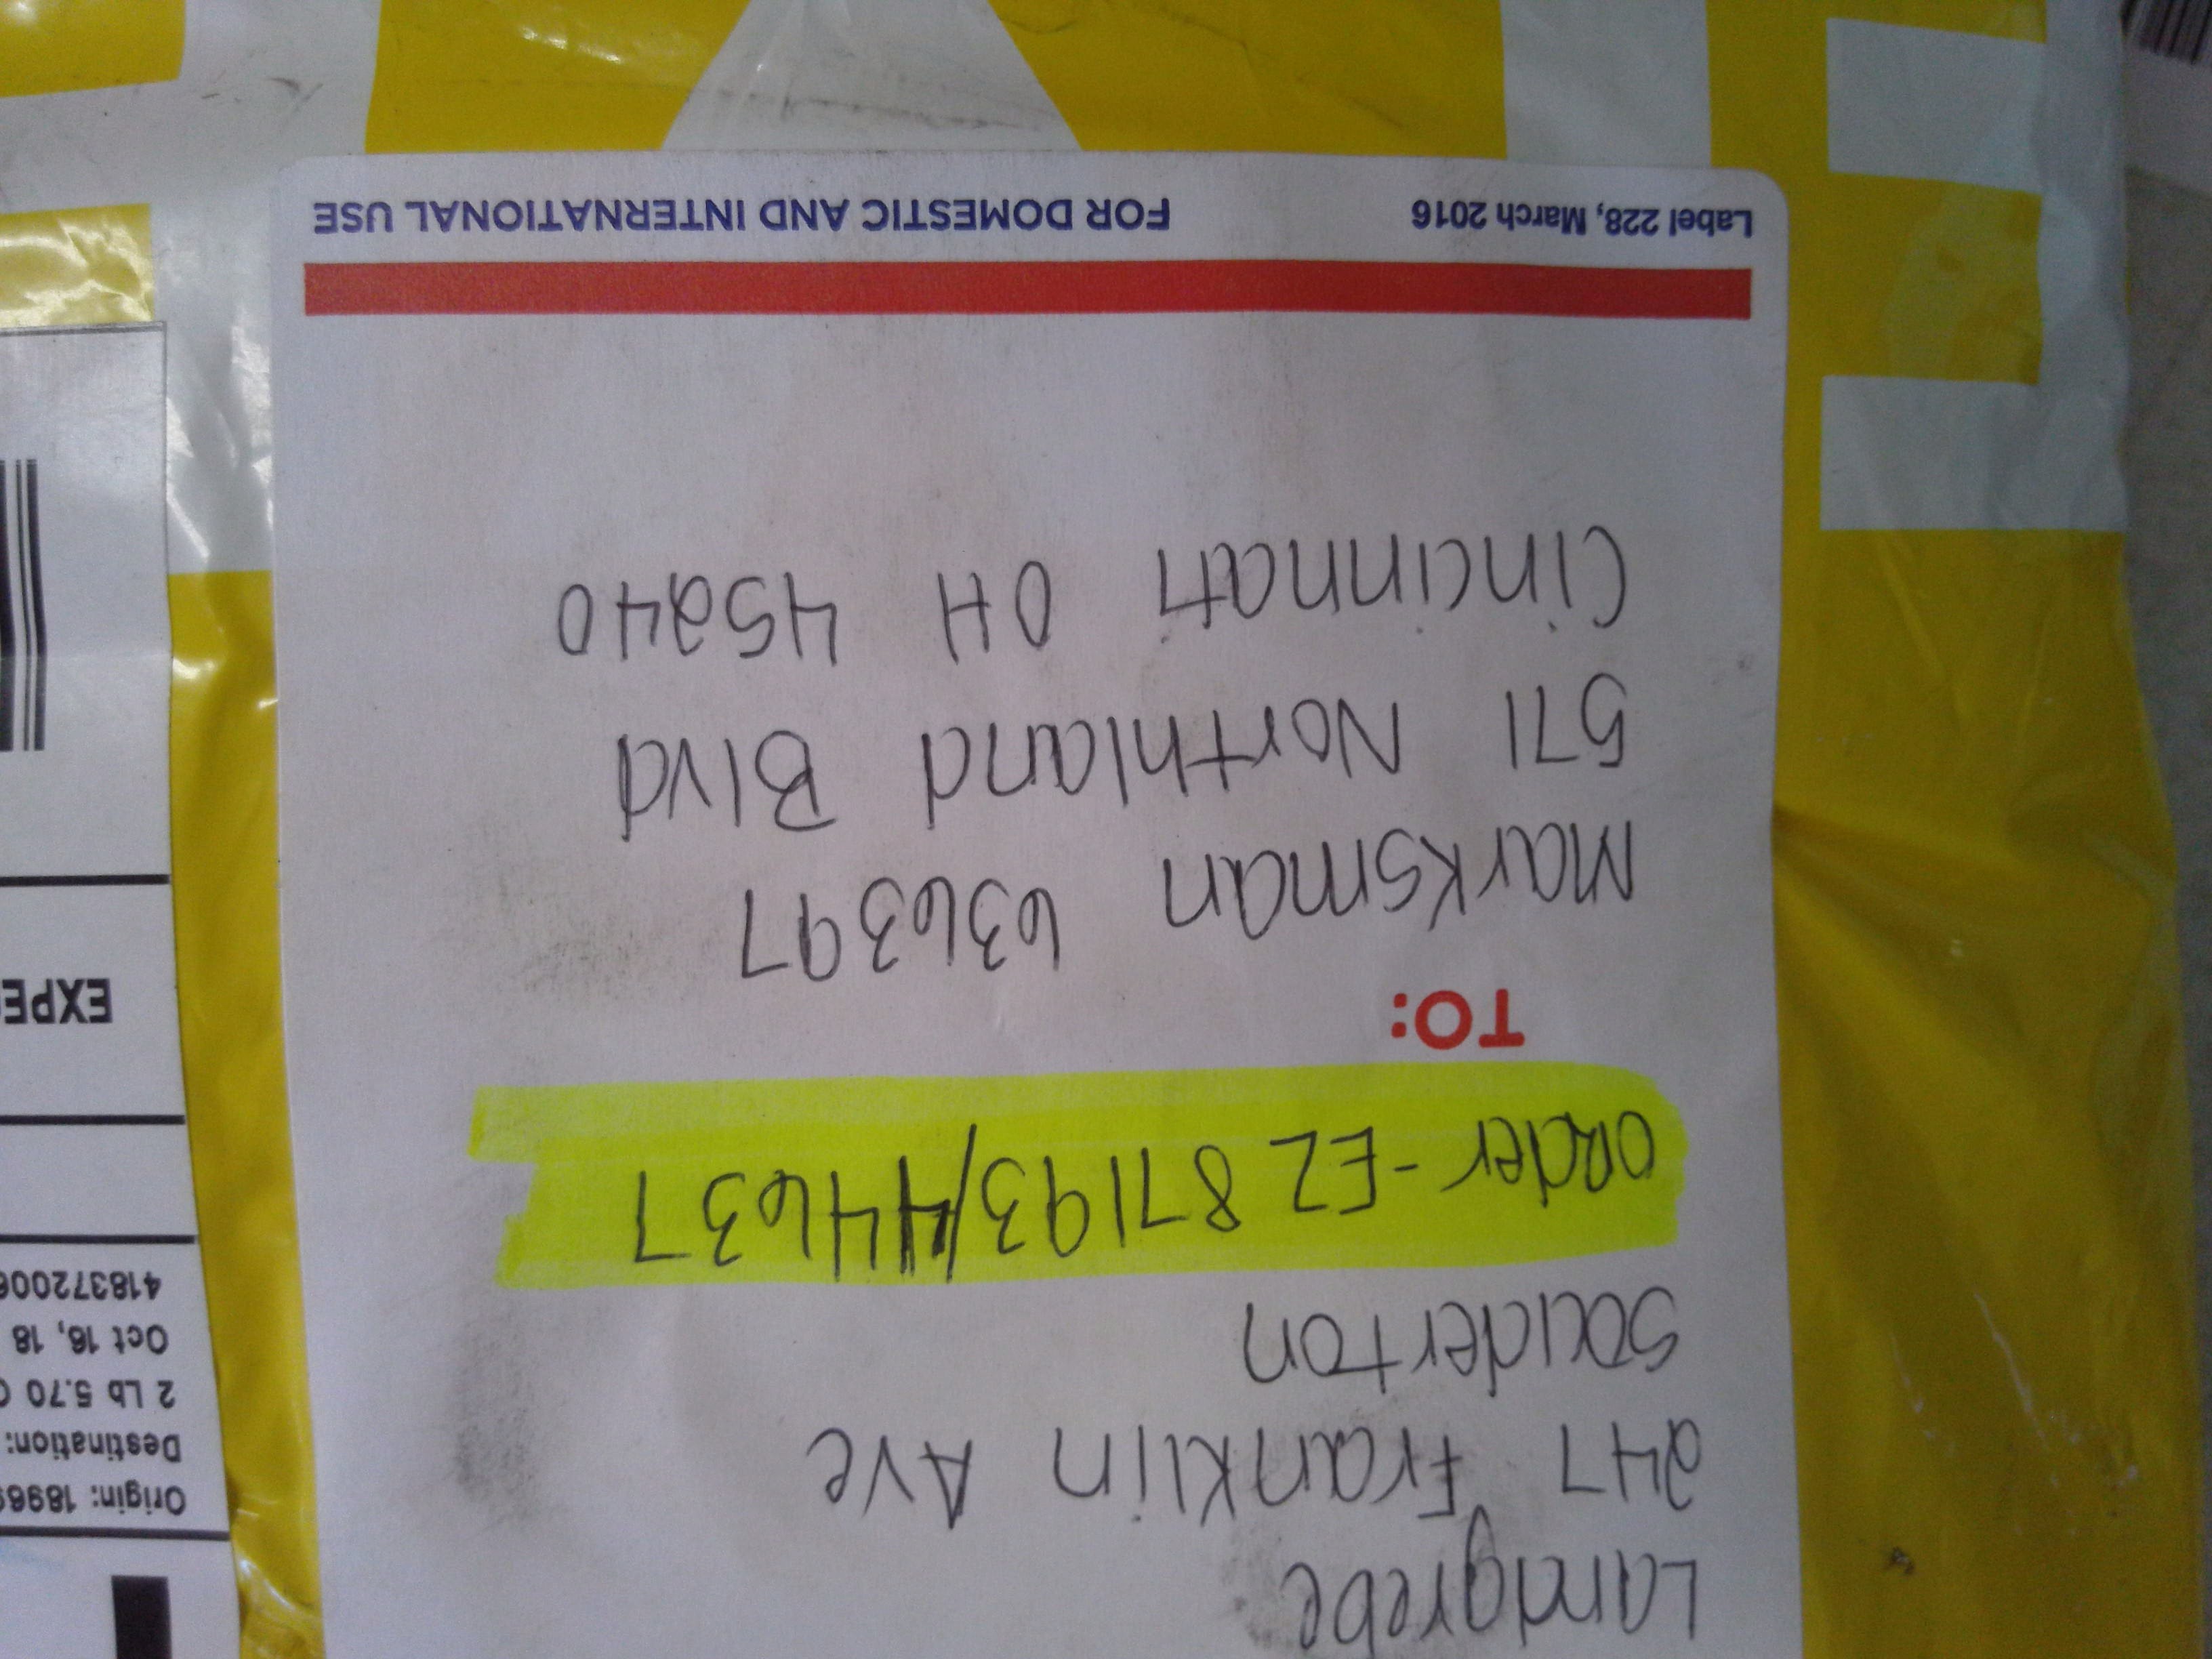 Landgrebe
247 Franklin Ave
Souderton
order - EZ 87193/44637
TO:
Marksman 636397
571 Northland Blvd
Cincinnati OH 45240
Label 228, March 2016 FOR DOMESTIC AND INTERNATIONAL USE
Origin: 1896
Destination:
2 Lb 5.70
Oct 16, 18
418372006
EXPE